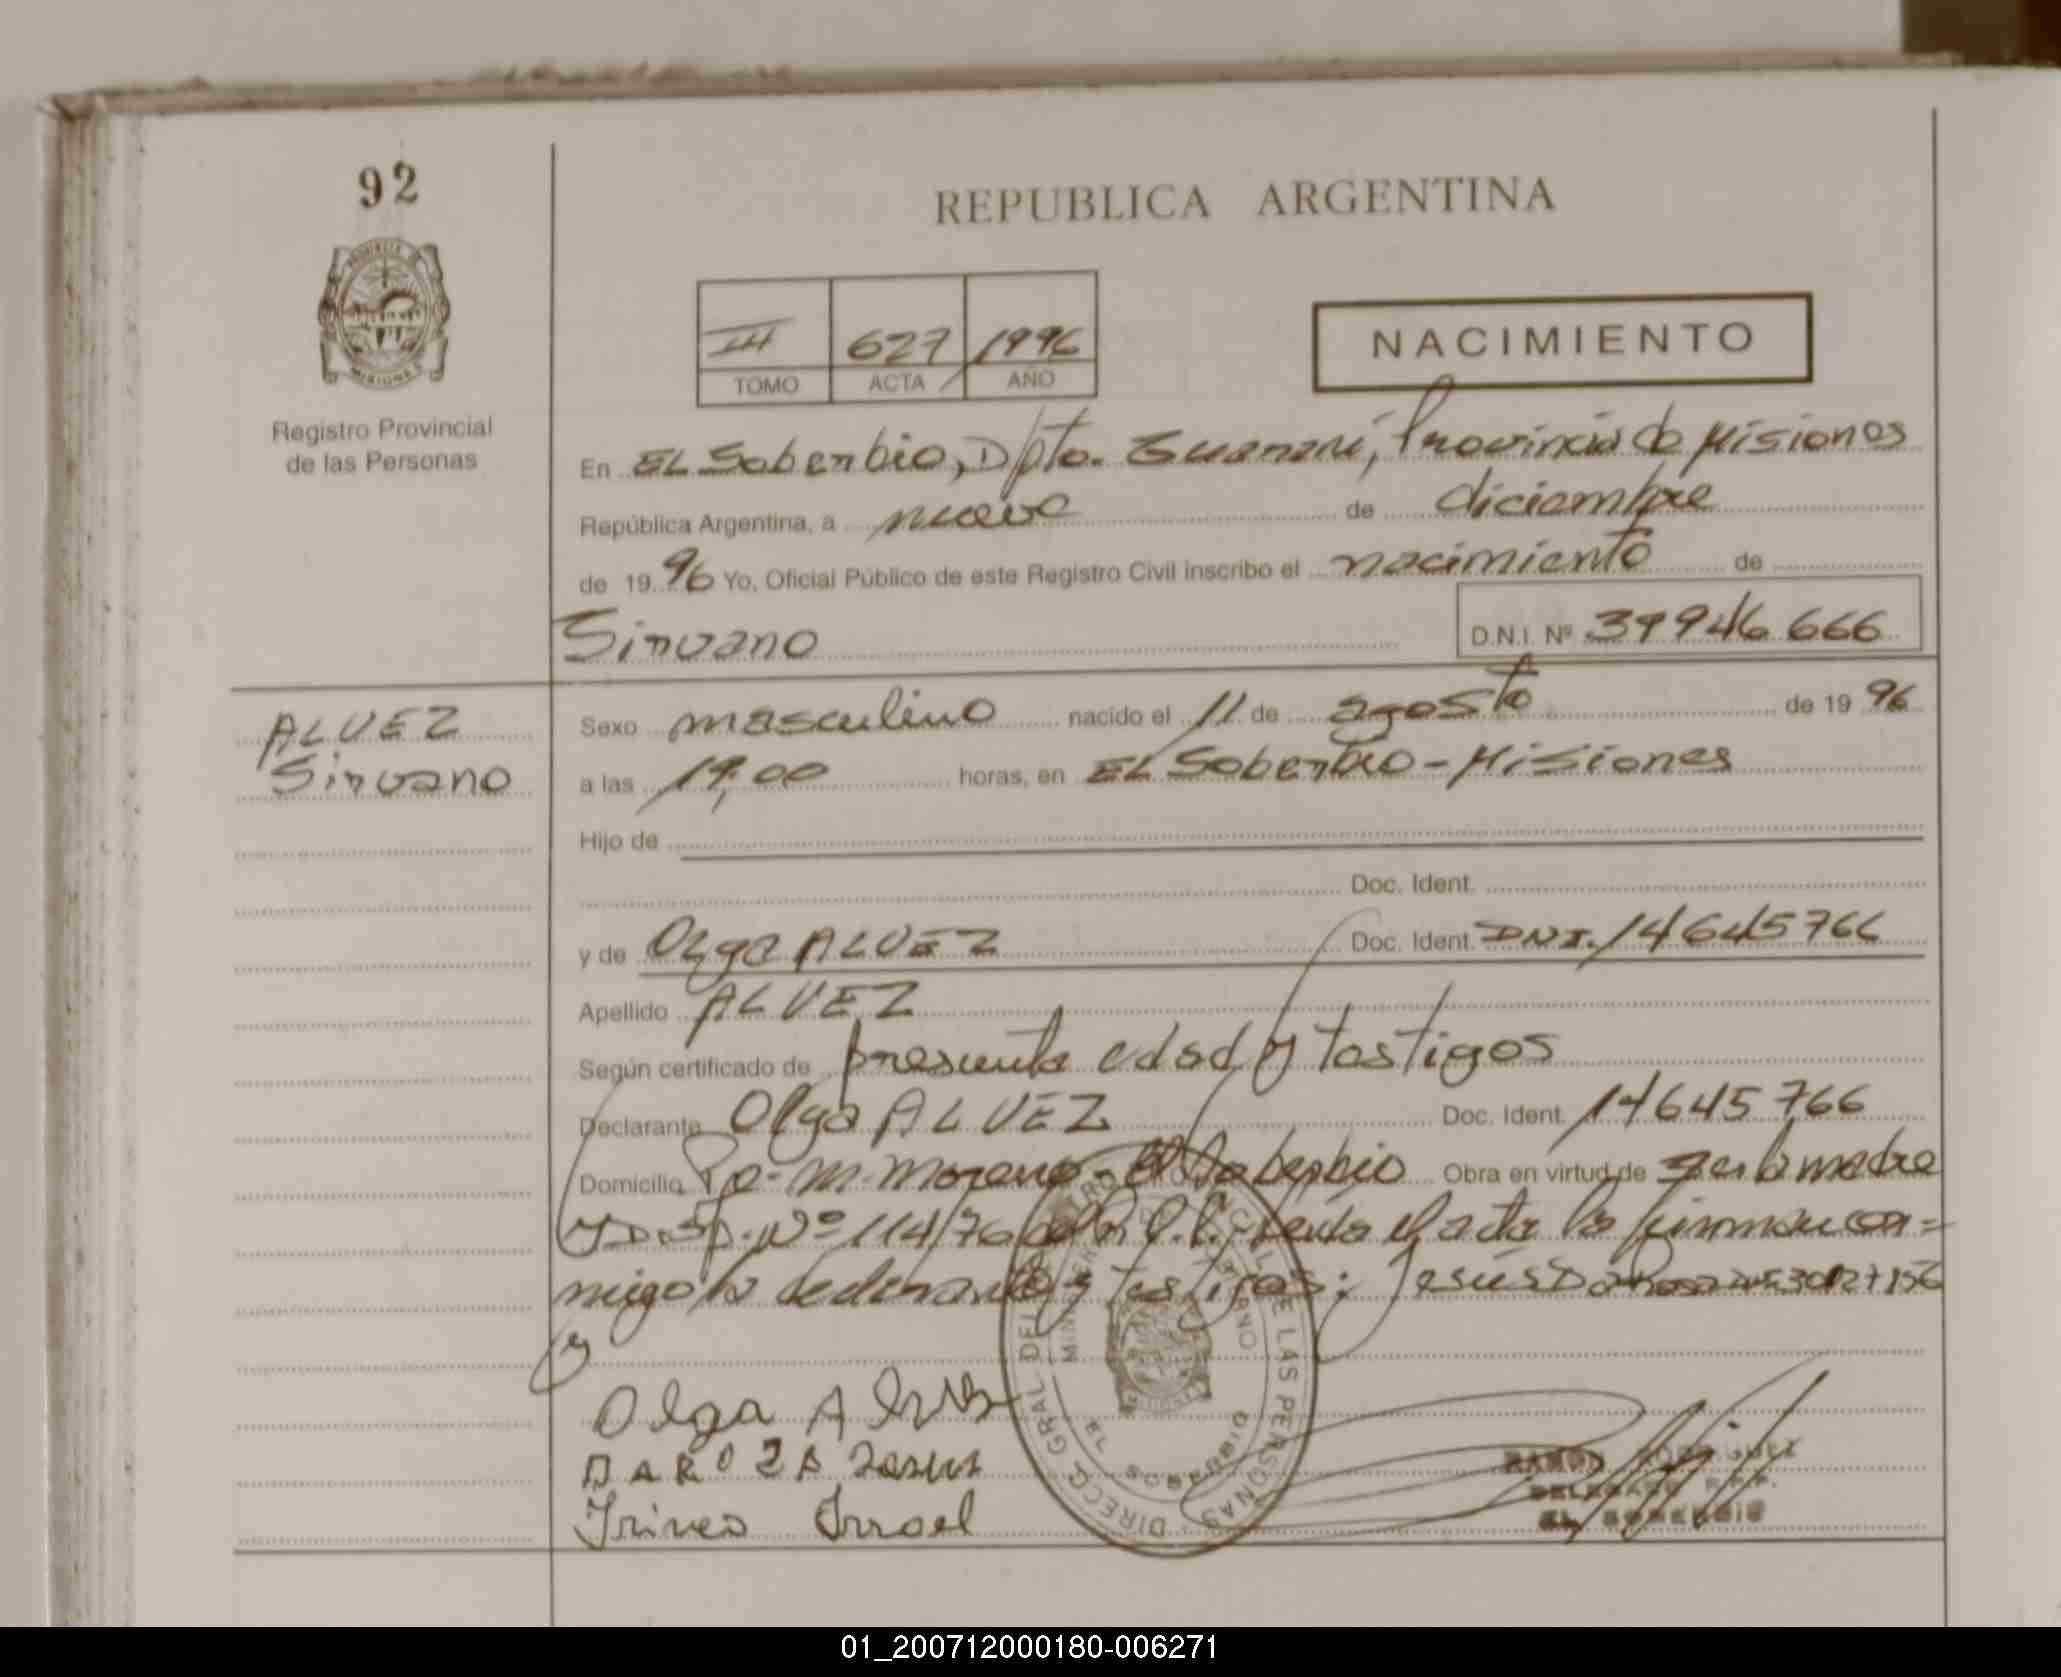 92
REPUBLICA ARGENTINA
PROVINCIA DE MISIONES
Registro Provincial
de las Personas
III 627 1996
TOMO ACTA AÑO
NACIMIENTO
En EL Soberbio, Dpto. Guaraní, Provincia de Misiones
República Argentina, a nueve de diciembre
de 1996 Yo, Oficial Público de este Registro Civil inscribo el nacimiento de
Sirvano D.N.I. Nº 39946666
ALVEZ
Sirvano
Sexo masculino nacido el 11 de agosto de 1996
a las 19,00 horas, en EL Soberbio - Misiones
Hijo de
Doc. Ident.
y de Olga ALVEZ Doc. Ident. DNI. 14645766
Apellido ALVEZ
Según certificado de presunta edad y testigos
Declarante Olga ALVEZ Doc. Ident. 14645766
Domicilio M. Moreno - El Soberbio Obra en virtud de ser la madre
y Disp. Nº 114/76 el acta la firman con=
migo la declarante y testigos: Jesús
y
Olga
DAROZA Jesus
Irineo Israel
DIRECC. GRAL. DEL REGISTRO PROVINCIAL DE LAS PERSONAS
MISIONES
RAMON RODRIGUEZ
DELEGADO R.P.P.
EL SOBERBIO
01_200712000180-006271